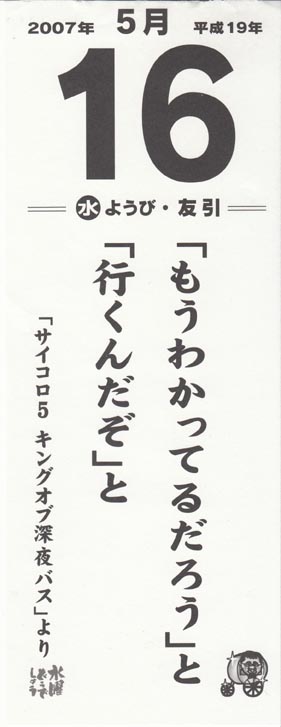 2007年 5月 平成19年
16
水 ようび・友引
「もうわかってるだろう」と
「行くんだぞ」と
「サイコロ5 キングオブ深夜バス」より
水曜
どうで
しょう